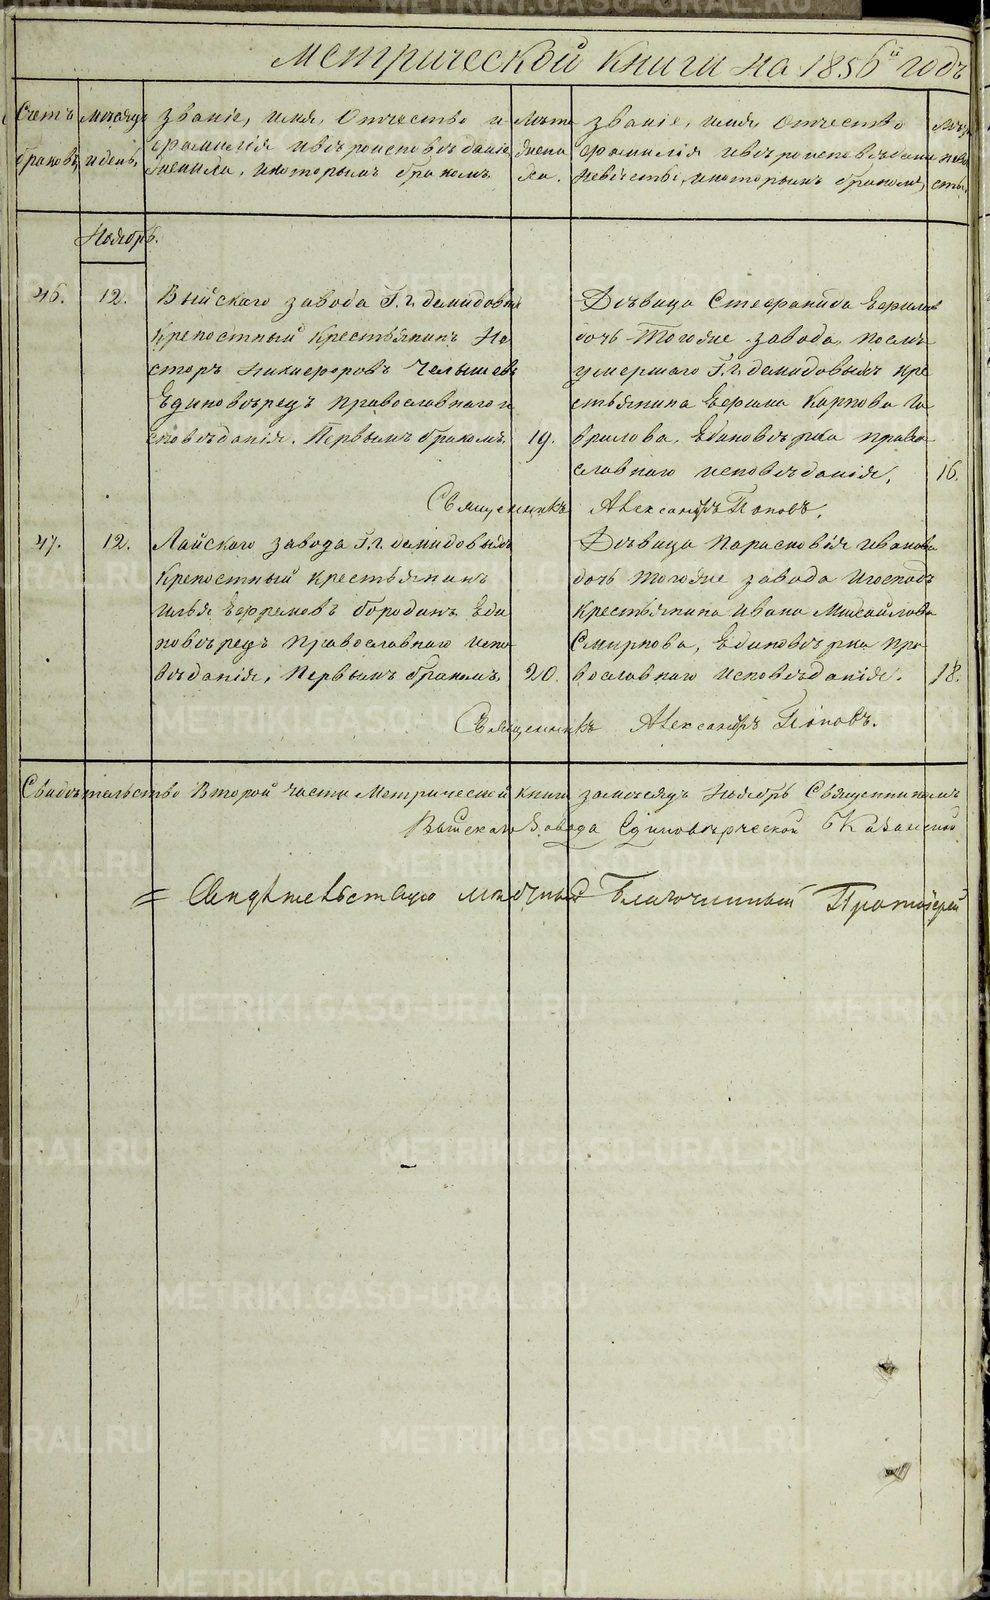 Метрической книги на 1856й годъ
Счетъ браковъ,
мѣсяцъ и день,
званіе, имя, отчество и
фамилія и вѣроисповѣданіе
жениха, и которымъ бракомъ
Лѣта
жениха.
званіе, имя, отчество
фамилія и вѣроисповѣданіе
невѣсты, и которымъ бракомъ,
Лѣта
невѣсты,
Ноябрь.
46.
12.
Выйскаго завода Г.г. Демидовыхъ
крепостный крестьянинъ Не
сторъ Никифоровъ Челышевъ
Единовѣрецъ православнаго и
сповѣданія. Первымъ бракомъ.
19.
Дѣвица Стефанида Ефимова
дочь тогоже завода, послѣ
умершаго Г.г. Демидовыхъ кре
стьянина Ефима Карпова Га
врилова, Единовѣрка право
славнаго исповѣданія,
16.
Священникъ Александръ Поповъ.
47.
12.
Лайскаго завода Г.г. Демидовыхъ
крепостный крестьянинъ
Илья Ефремовъ Бородинъ Еди
новѣрецъ православнаго испо
вѣданія, Первымъ бракомъ,
20.
Дѣвица Парасковія Иванова
дочь тогоже завода и господъ
крестьянина Ивана Михайлова
Смирнова, Единовѣрка пра
вославнаго исповѣданія.
18.
Священникъ Александръ Поповъ.
Свидѣтельство второй части Метрической книги за мѣсяцъ Ноябрь Священникомъ
Выйскаго завода Единовѣрческой Казанской
= Свидѣтельствую Благочинный Протоіерей
METRIKI.GASO-URAL.RU